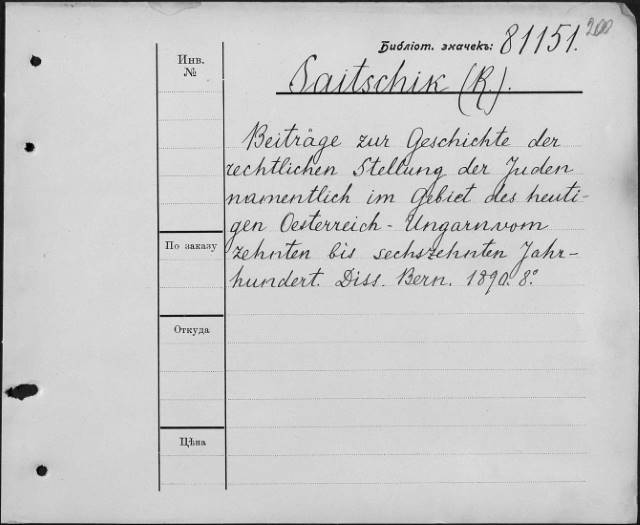 200
Библіот. значекъ: 81151.
Инв.
№
Saitschik (R.).
Beiträge zur Geschichte der
rechtlichen Stellung der Juden
namentlich im Gebiet des heuti-
gen Oesterreich-Ungarn vom
zehnten bis sechszehnten Jahr-
hundert. Diss. Bern. 1890. 8°.
По заказу
Откуда
Цѣна